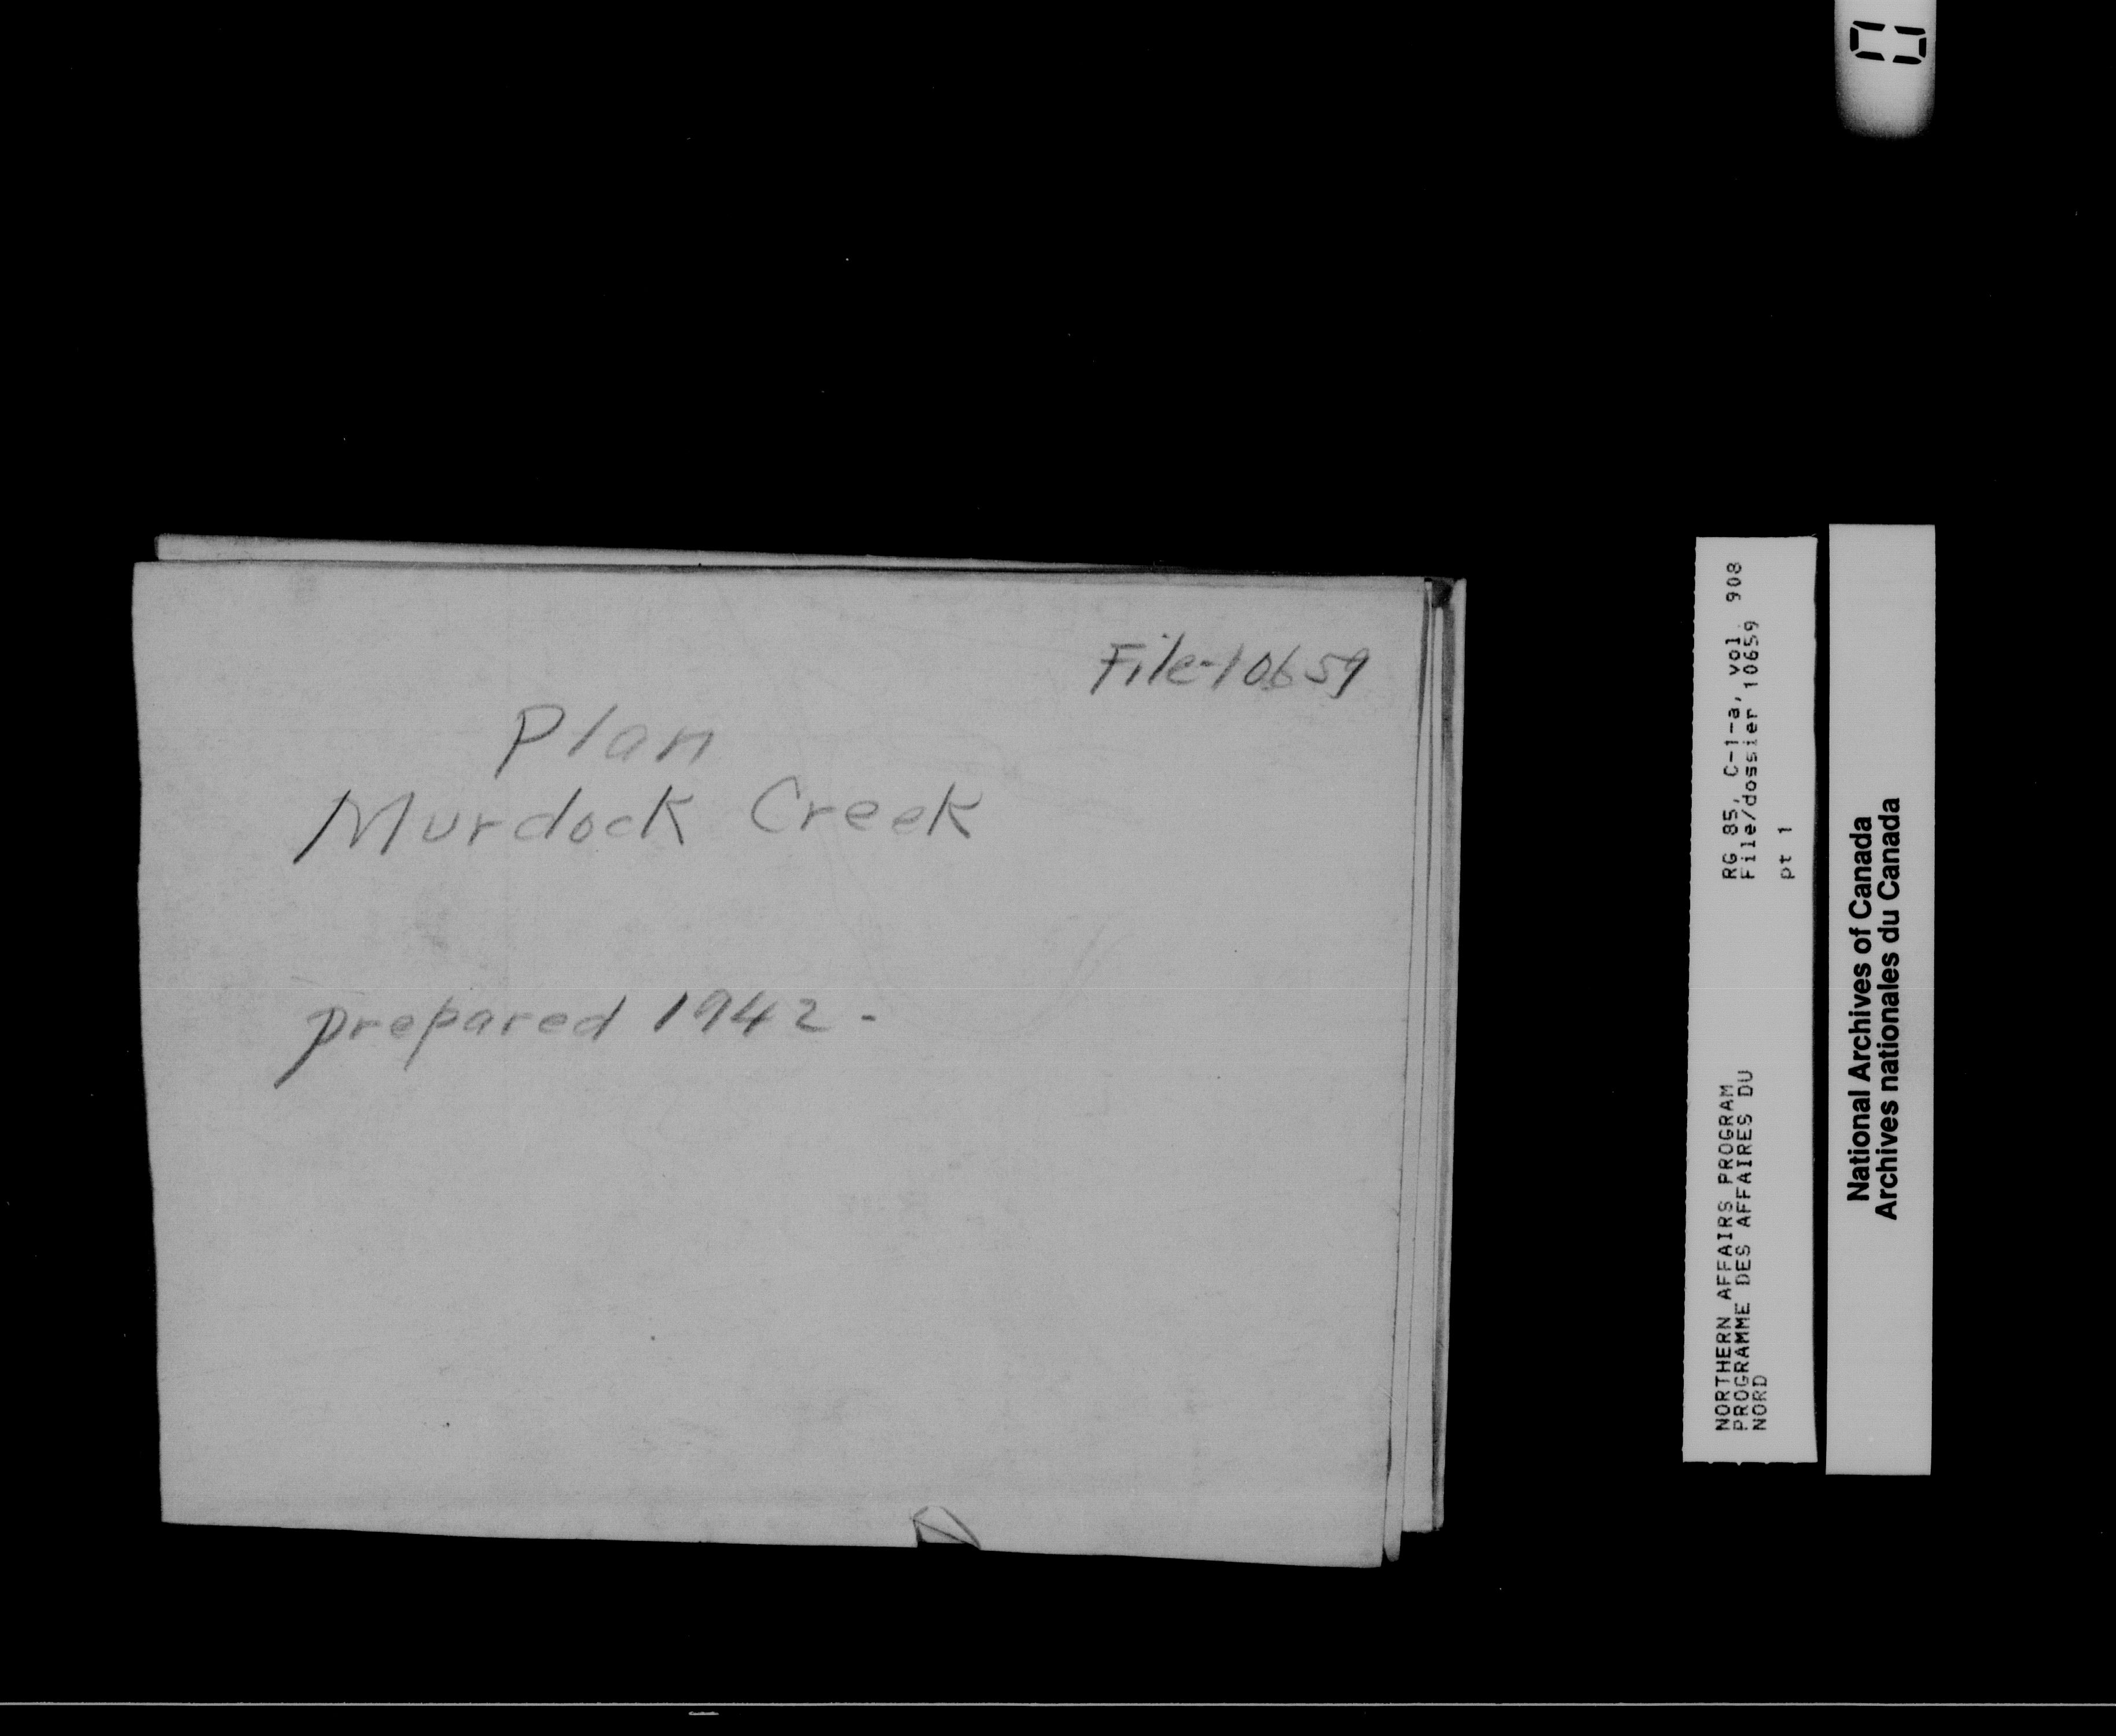 File-10659
Plan
Murdock Creek
prepared 1942-
RG 85, C-1-a, vol. 908
File/dossier 10659
pt 1
NORTHERN AFFAIRS PROGRAM
PROGRAMME DES AFFAIRES DU
NORD
National Archives of Canada
Archives nationales du Canada